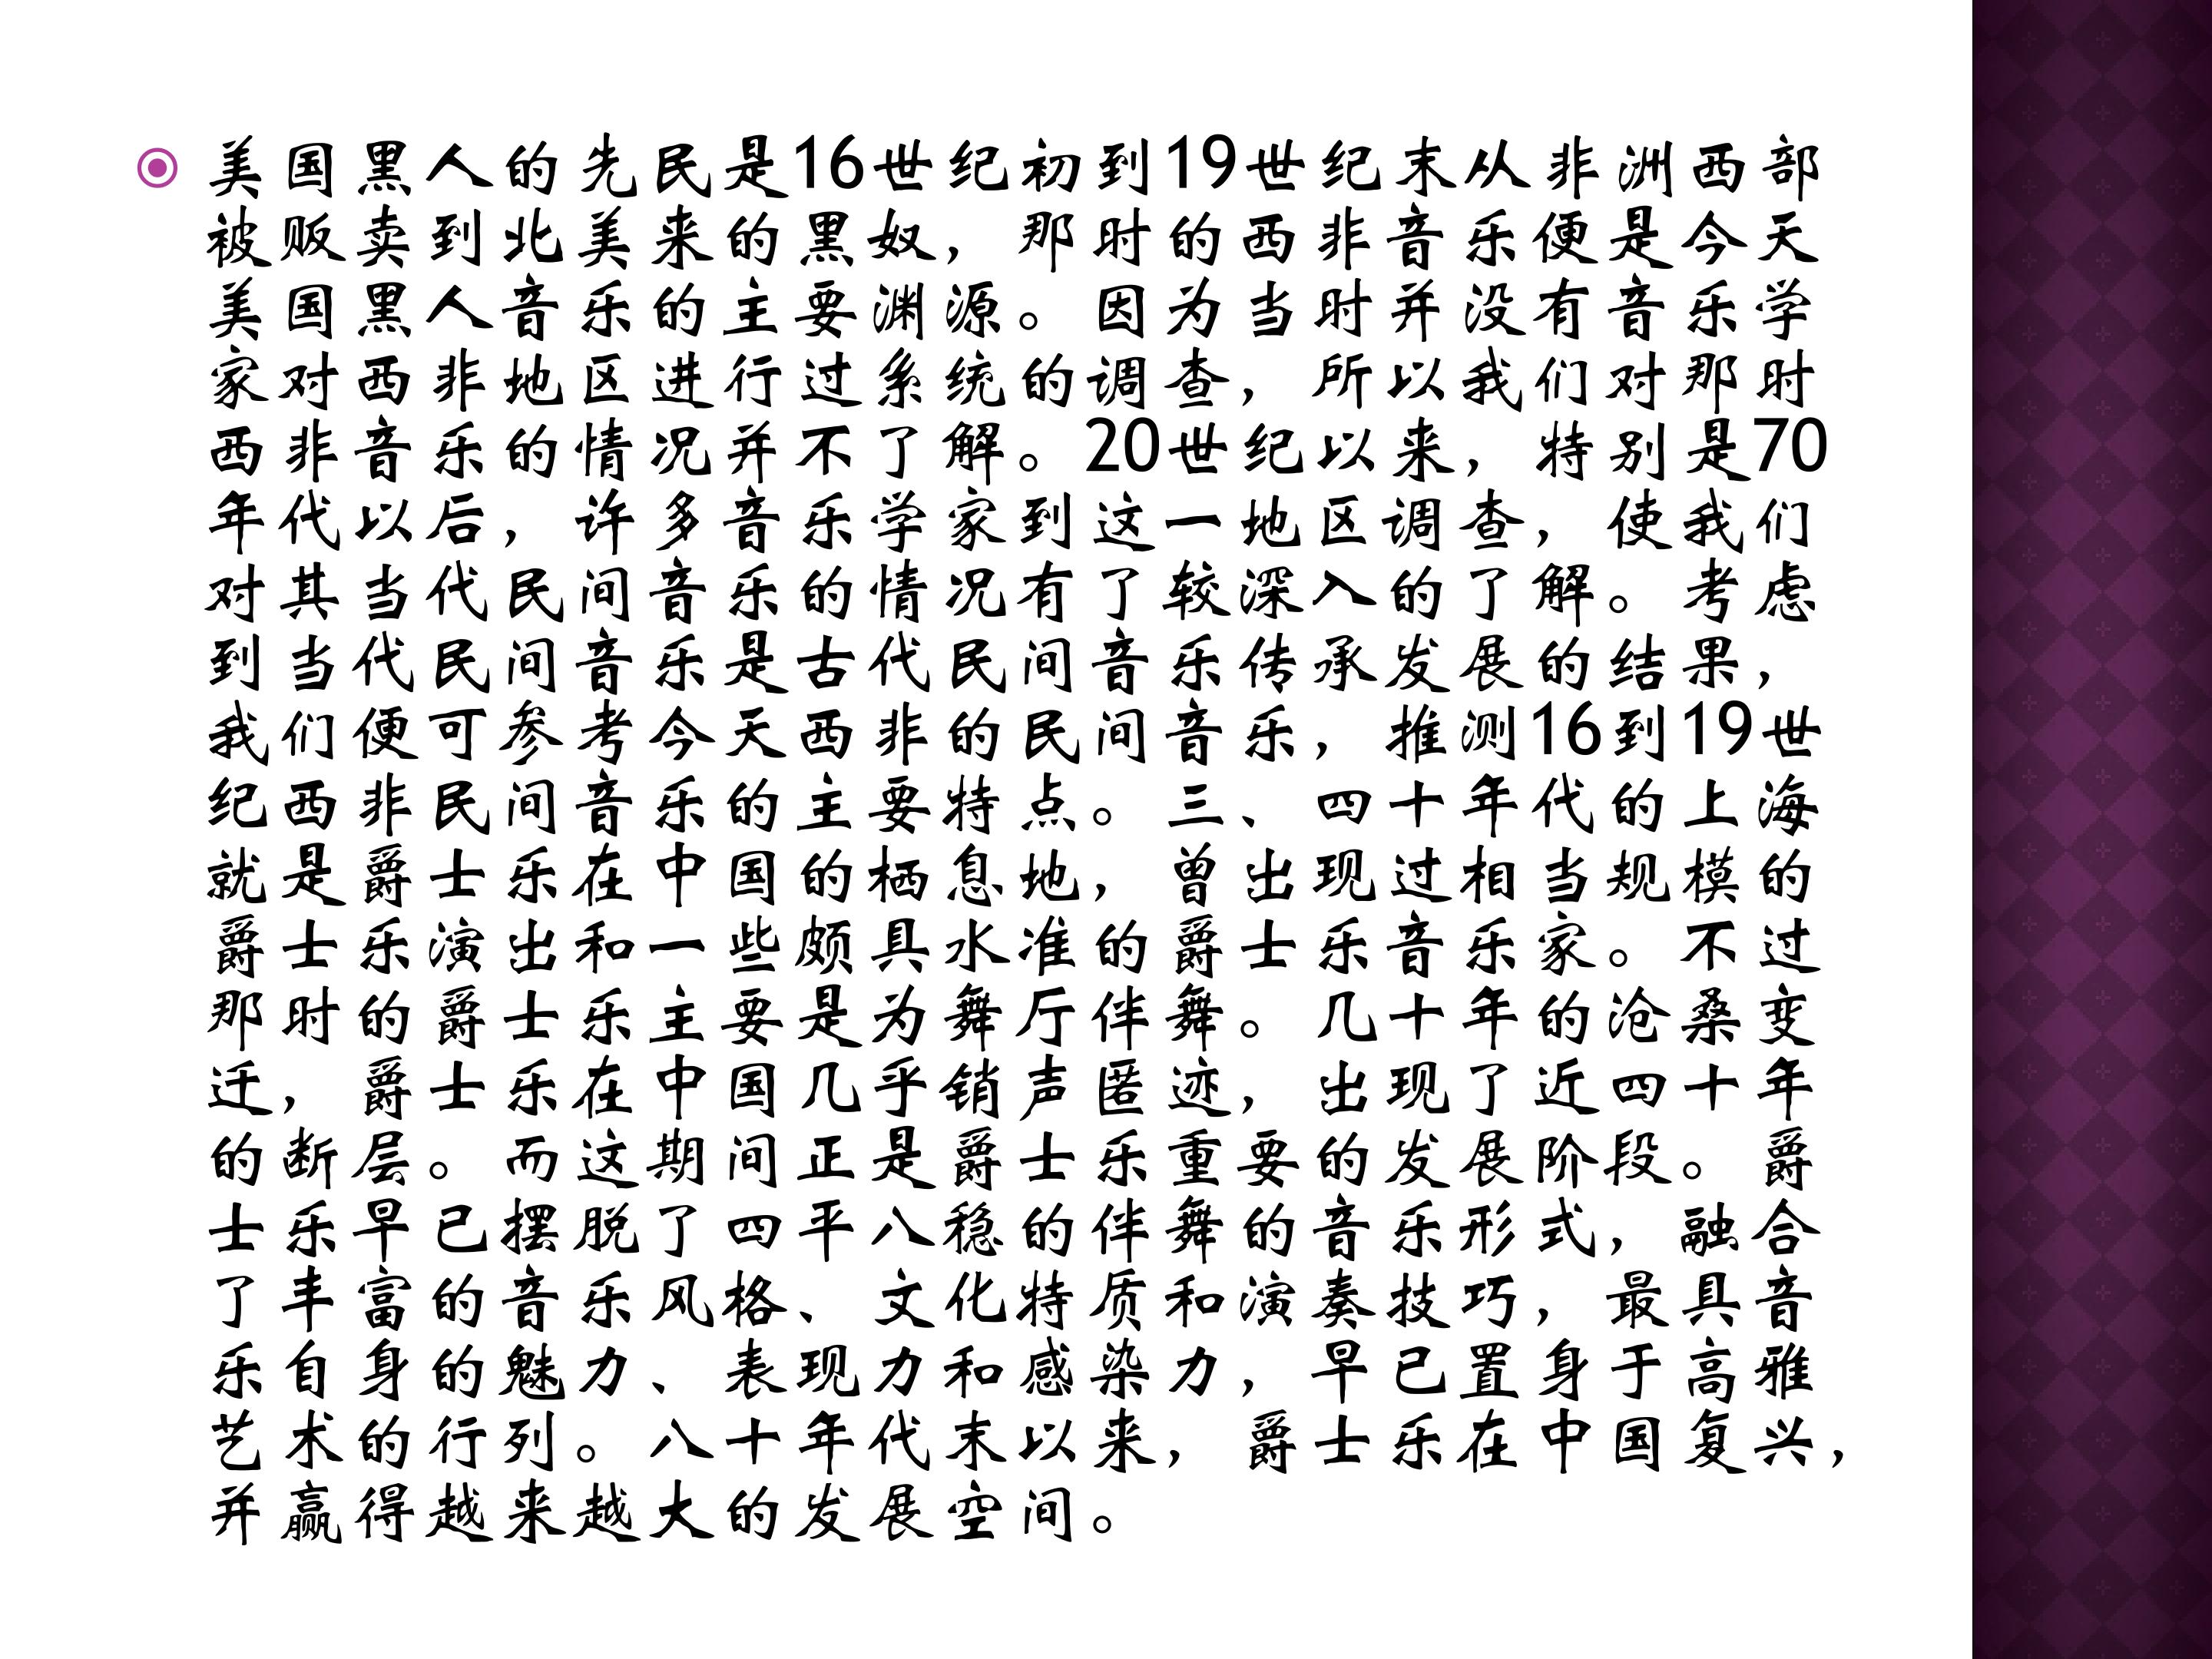 美国黑人的先民是16世纪初到19世纪末从非洲西部
被贩卖到北美来的黑奴，那时的西非音乐便是今天
美国黑人音乐的主要渊源。因为当时并没有音乐学
家对西非地区进行过系统的调查，所以我们对那时
西非音乐的情况并不了解。20世纪以来，特别是70
年代以后，许多音乐学家到这一地区调查，使我们
对其当代民间音乐的情况有了较深入的了解。考虑
到当代民间音乐是古代民间音乐传承发展的结果，
我们便可参考今天西非的民间音乐，推测16到19世
纪西非民间音乐的主要特点。三、四十年代的上海
就是爵士乐在中国的栖息地，曾出现过相当规模的
爵士乐演出和一些颇具水准的爵士乐音乐家。不过
那时的爵士乐主要是为舞厅伴舞。几十年的沧桑变
迁，爵士乐在中国几乎销声匿迹，出现了近四十年
的断层。而这期间正是爵士乐重要的发展阶段。爵
士乐早已摆脱了四平八稳的伴舞的音乐形式，融合
了丰富的音乐风格、文化特质和演奏技巧，最具音
乐自身的魅力、表现力和感染力，早已置身于高雅
艺术的行列。八十年代末以来，爵士乐在中国复兴，
并赢得越来越大的发展空间。